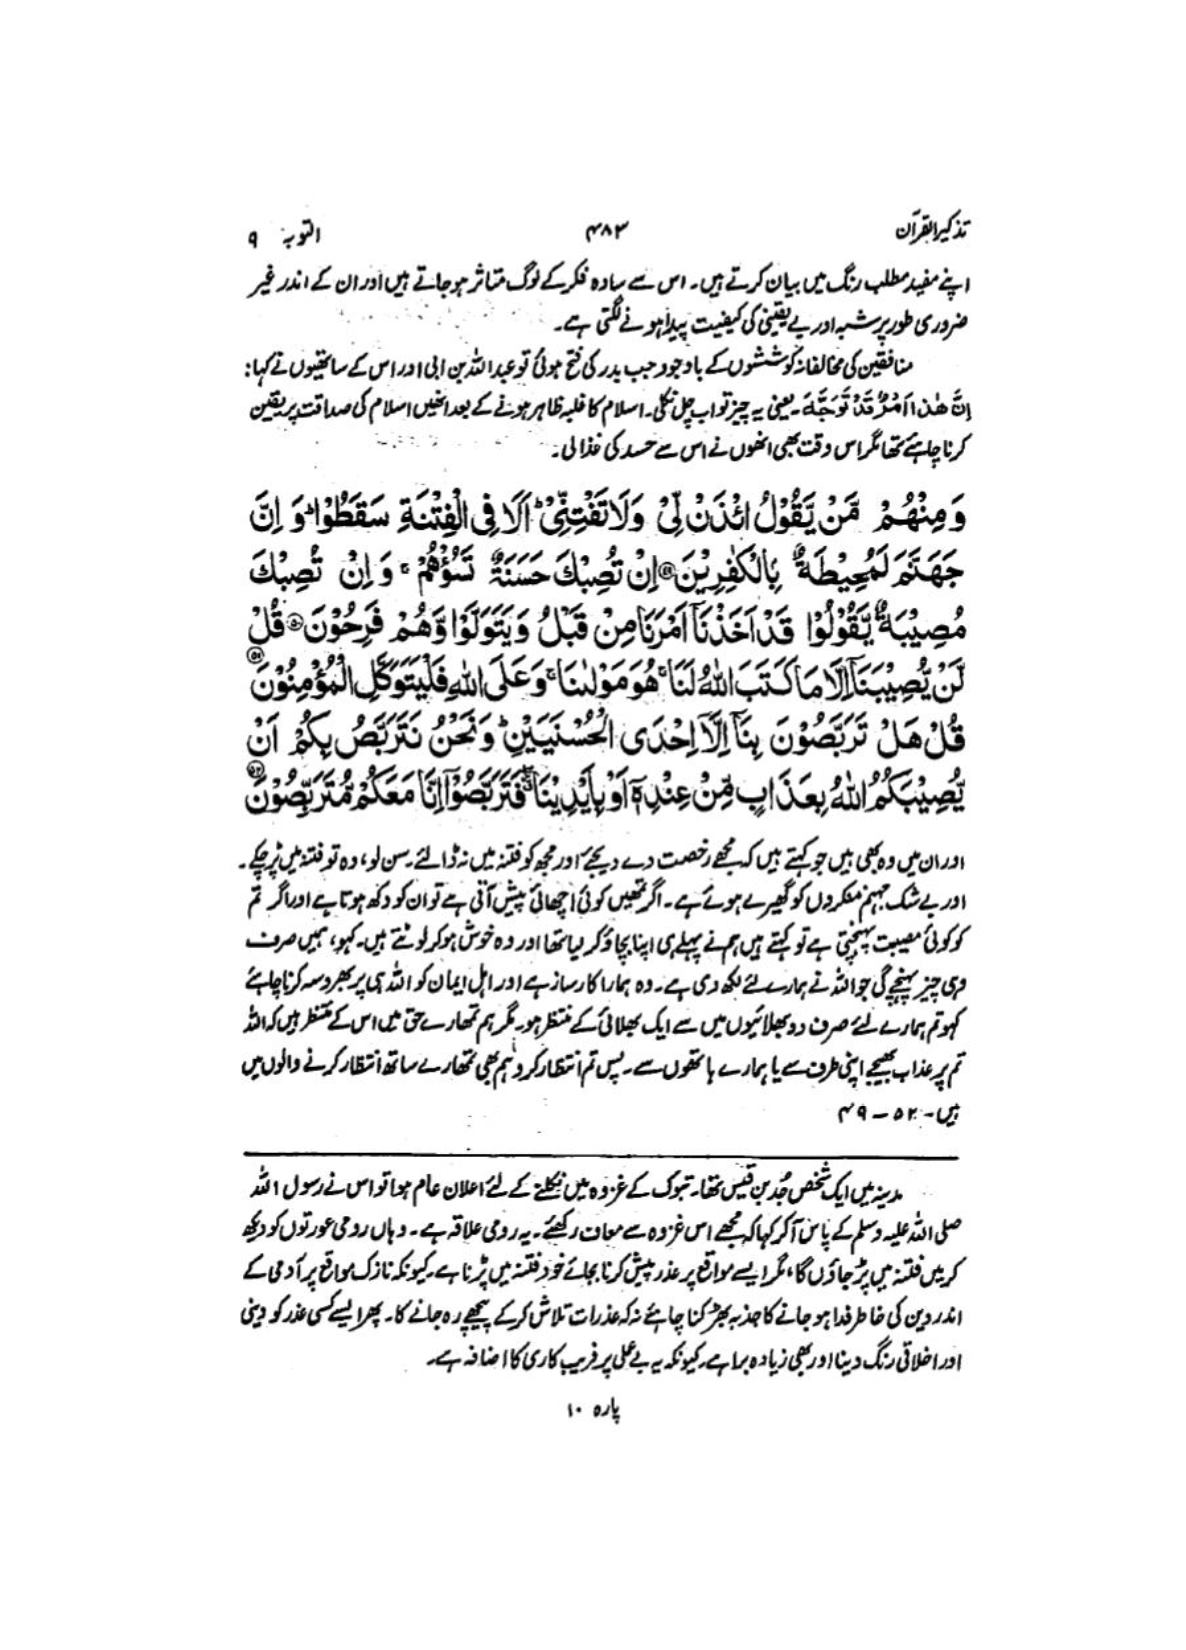 تذکیر القرآن ۴۸۳ التوبہ ۹
اپنے مفید مطلب رنگ میں بیان کرتے ہیں۔ اس سے سادہ فکر کے لوگ متاثر ہو جاتے ہیں اور ان کے اندر غیر
ضروری طور پر شبہ اور بے یقینی کی کیفیت پیدا ہونے لگتی ہے۔
منافقین کی مخالفانہ کوششوں کے باوجود جب بدر کی فتح ہوئی تو عبداللہ بن ابی اور اس کے ساتھیوں نے کہا:
اِنَّ هٰذَا اَمْرٌ قَدْ تَوَجَّهَ۔ یعنی یہ چیز تو اب چل نکلی۔ اسلام کا غلبہ ظاہر ہونے کے بعد انھیں اسلام کی صداقت پر یقین
کرنا چاہئے تھا مگر اس وقت بھی انھوں نے اس سے حسد کی غذا لی۔
وَمِنْهُمْ مَّنْ يَّقُوْلُ ائْذَنْ لِّيْ وَلَا تَفْتِنِّيْ ؕ اَلَا فِى الْفِتْنَةِ سَقَطُوْا ؕ وَاِنَّ
جَهَنَّمَ لَمُحِيْطَةٌۢ بِالْكٰفِرِيْنَ ﴿۴۹﴾ اِنْ تُصِبْكَ حَسَنَةٌ تَسُؤْهُمْ ۚ وَاِنْ تُصِبْكَ
مُصِيْبَةٌ يَّقُوْلُوْا قَدْ اَخَذْنَاۤ اَمْرَنَا مِنْ قَبْلُ وَيَتَوَلَّوْا وَّهُمْ فَرِحُوْنَ ﴿۵۰﴾ قُلْ
لَّنْ يُّصِيْبَنَاۤ اِلَّا مَا كَتَبَ اللّٰهُ لَنَا ۚ هُوَ مَوْلٰىنَا ۚ وَعَلَى اللّٰهِ فَلْيَتَوَكَّلِ الْمُؤْمِنُوْنَ ﴿۵۱﴾
قُلْ هَلْ تَرَبَّصُوْنَ بِنَاۤ اِلَّاۤ اِحْدَى الْحُسْنَيَيْنِ ؕ وَنَحْنُ نَتَرَبَّصُ بِكُمْ اَنْ
يُّصِيْبَكُمُ اللّٰهُ بِعَذَابٍ مِّنْ عِنْدِهٖۤ اَوْ بِاَيْدِيْنَا ۖ فَتَرَبَّصُوْۤا اِنَّا مَعَكُمْ مُّتَرَبِّصُوْنَ ﴿۵۲﴾
اور ان میں وہ بھی ہیں جو کہتے ہیں کہ مجھے رخصت دے دیجئے اور مجھ کو فتنہ میں نہ ڈالئے۔ سن لو، وہ تو فتنہ میں پڑ چکے۔
اور بے شک جہنم منکروں کو گھیرے ہوئے ہے۔ اگر تمھیں کوئی اچھائی پیش آتی ہے تو ان کو دکھ ہوتا ہے اور اگر تم
کو کوئی مصیبت پہنچتی ہے تو کہتے ہیں ہم نے پہلے ہی اپنا بچاؤ کر لیا تھا اور وہ خوش ہو کر لوٹتے ہیں۔ کہو، ہمیں صرف
وہی چیز پہنچے گی جو اللہ نے ہمارے لئے لکھ دی ہے۔ وہ ہمارا کارساز ہے اور اہل ایمان کو اللہ ہی پر بھروسہ کرنا چاہئے
کہو تم ہمارے لئے صرف دو بھلائیوں میں سے ایک بھلائی کے منتظر ہو۔ مگر ہم تمھارے حق میں اس کے منتظر ہیں کہ اللہ
تم پر عذاب بھیجے اپنی طرف سے یا ہمارے ہاتھوں سے۔ پس تم انتظار کرو ہم بھی تمھارے ساتھ انتظار کرنے والوں میں
ہیں۔ ۵۲ – ۴۹
مدینہ میں ایک شخص جُد بن قیس تھا۔ تبوک کے غزوہ میں نکلنے کے لئے اعلان عام ہوا تو اس نے رسول اللہ
صلی اللہ علیہ وسلم کے پاس آ کر کہا کہ مجھے اس غزوہ سے معاف رکھئے۔ یہ رومی علاقہ ہے۔ وہاں رومی عورتوں کو دیکھ
کر میں فتنہ میں پڑ جاؤں گا، مگر ایسے مواقع پر عذر پیش کرنا بجائے خود فتنہ میں پڑنا ہے۔ کیونکہ نازک مواقع پر آدمی کے
اندر دین کی خاطر فدا ہو جانے کا جذبہ بھڑکنا چاہئے نہ کہ عذرات تلاش کر کے پیچھے رہ جانے کا۔ پھر ایسے کسی عذر کو دینی
اور اخلاقی رنگ دینا اور بھی زیادہ برا ہے۔ کیونکہ یہ بے عملی پر فریب کاری کا اضافہ ہے۔
پارہ ۱۰